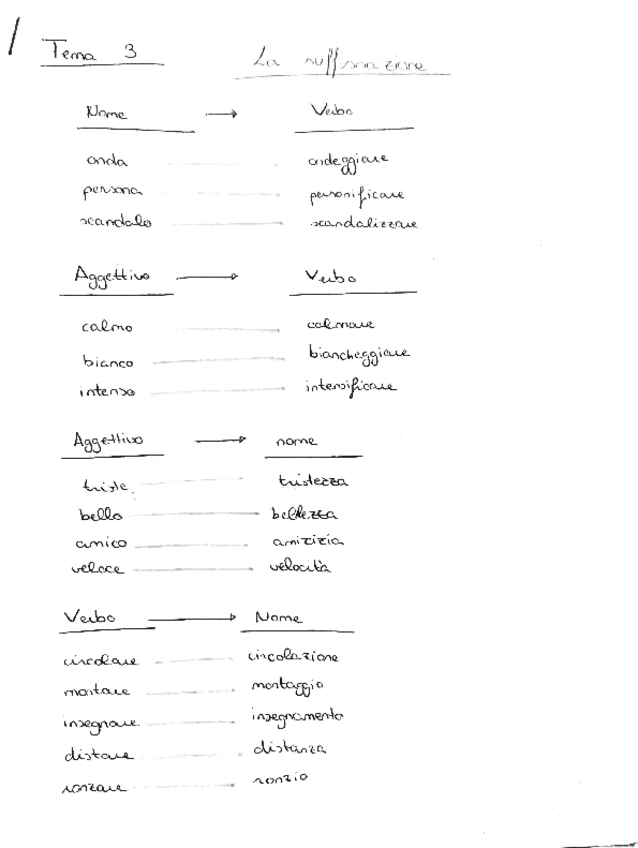 Tema 3 La suffissazione
Nome → Verbo
onda ondeggiare
persona personificare
scandalo scandalizzare
Aggettivo → Verbo
calmo calmare
bianco biancheggiare
intenso intensificare
Aggettivo → nome
triste tristezza
bello bellezza
amico amicizia
veloce velocità
Verbo → Nome
circolare circolazione
montare montaggio
insegnare insegnamento
distare distanza
ronzare ronzio